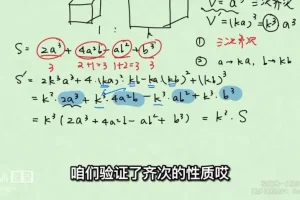 V' = (ka)³ = k³a³
S = 2a³ + 4a²b - ab² + b³
3 2+1=3 1+2=3 3
① 三次齐次
② a→ka, b→kb
S' = 2k³a³ + 4·(ka)²·kb - ka(kb)² + (kb)³
= k³·2a³ + k³·4a²b - k³·ab² + k³·b³
= k³(2a³ + 4a²b - ab² + b³) = k³·S
咱们验证了齐次的性质哎